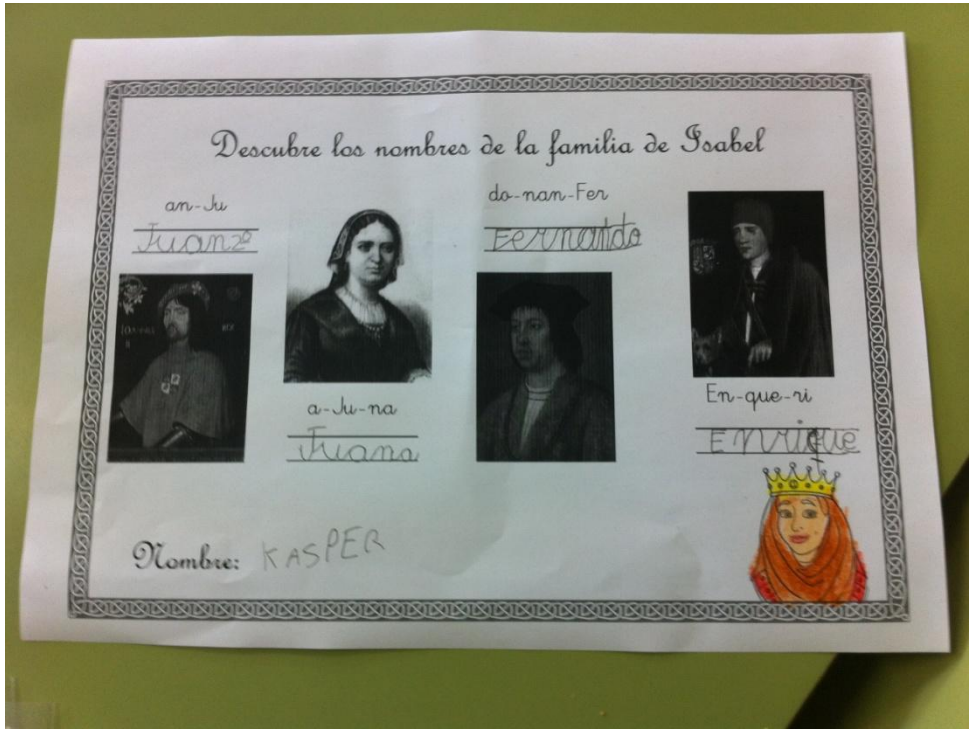 Descubre los nombres de la familia de Isabel
an-Ju
Juan 2º
a-Ju-na
Juana
do-nan-Fer
Fernando
En-que-ri
Enrique
Nombre: KASPER